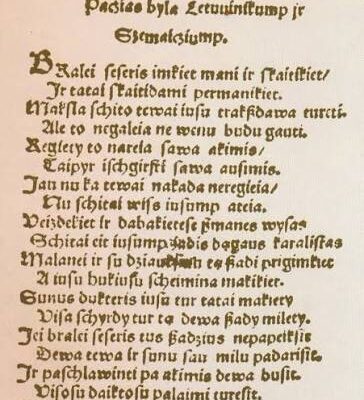 Paczias byla Letuuinikump ir
Szemaicziump.
BRalei seseris imkiet mani ir skaitikiet/
Ir tatai skaitidami permanikiet.
Maksla schito tewai iusu trakszdawa tureti.
Ale to negaleia ne wenu budu gauti.
Regiety to nareia sawa akimis/
Taipyr ischgirsti sawa ausimis.
Jau nu ka tewai nakada neregieia/
Nu schitai wiss iusump ateia.
Veizdekiet ir dabakietese szmanes wysas
Schitai eit iusump dagaus karalistas
Malanei ir su dziauksmu ta szadi prigimkiet
A iusu hukiusu scheimina makikiet.
Sunus dukteris iusu tur tatai makety
Visa schyrdy tur ta dewa szady milety.
Jei bralei seseris tus szadzius nepapeiksit
Dewa tewa ir sunu sau milu padarisit.
Ir paschlawinti pa akimis dewa busit.
Visosu daiktosu palaima turesit.